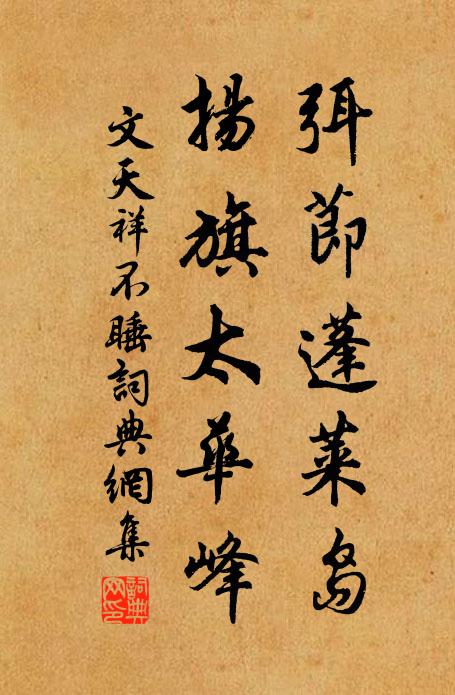 弭節蓬莱島
揚旗太華峰
文天祥不睡詞典網集
詞典
网印